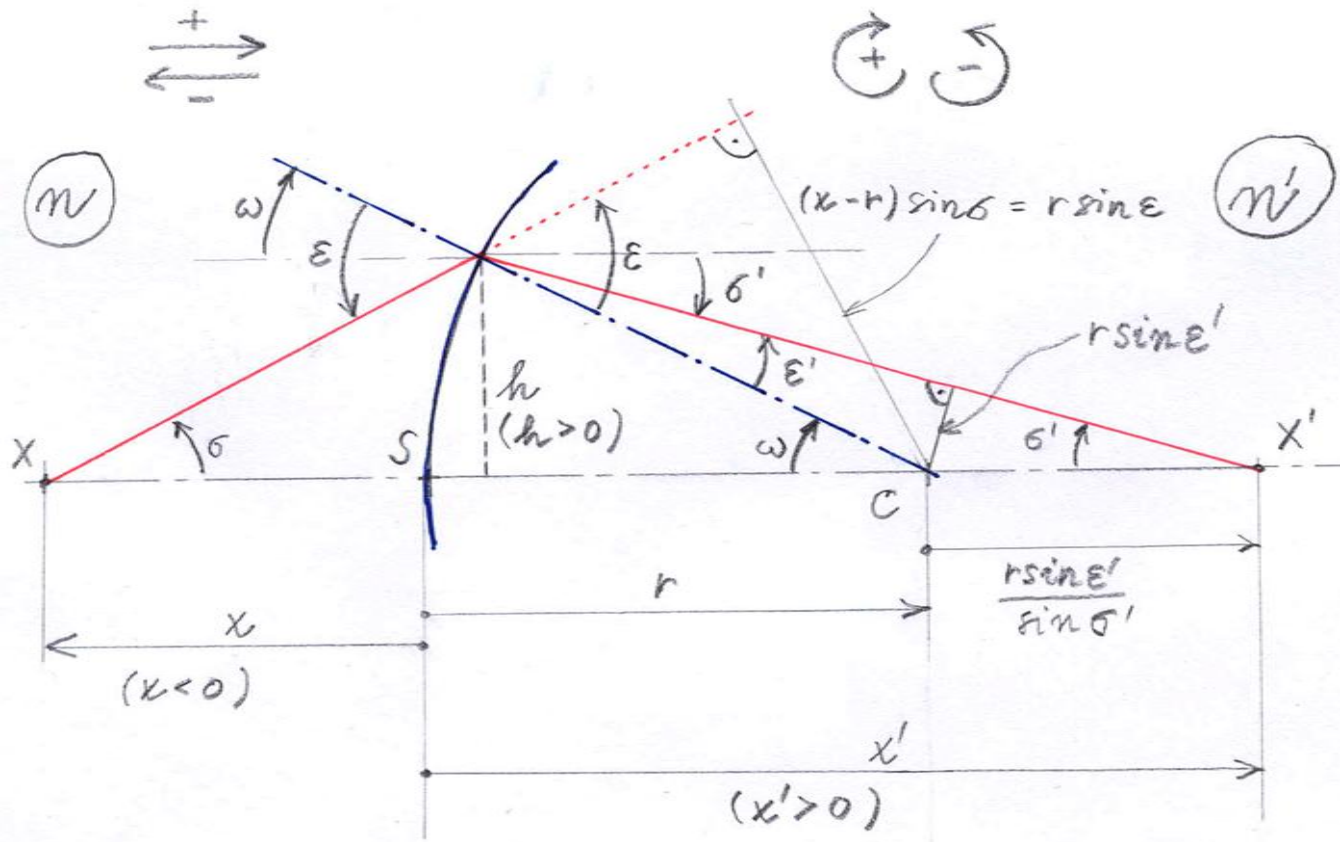 +
-
+ -
n
n'
ω
ε
ε
σ'
(x-r)sinσ = r sinε
r sinε'
h
(h>0)
ε'
X
σ
S
ω
C
σ'
X'
r
r sinε'
sin σ'
x
(x<0)
x'
(x'>0)